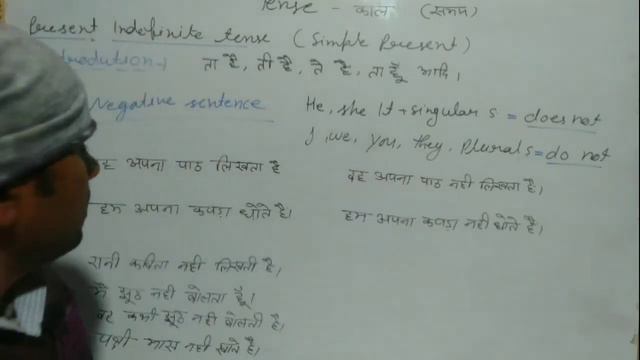 Tense - काल (समय)
Present Indefinite tense (Simple Present)
ता है, ती है, ते है, ता हूँ आदि।
Negative sentence
He, she It + singular s = does not
I, we, you, they, Plural s = do not
वह अपना पाठ लिखता है
वह अपना पाठ नही लिखता है।
हम अपना कपड़ा धोते है।
हम अपना कपड़ा नही धोते है।
रानी कविता नही लिखती है।
मै झूठ नही बोलता हूँ।
वह कभी झूठ नही बोलती है।
पक्षी मास नही खाते है।